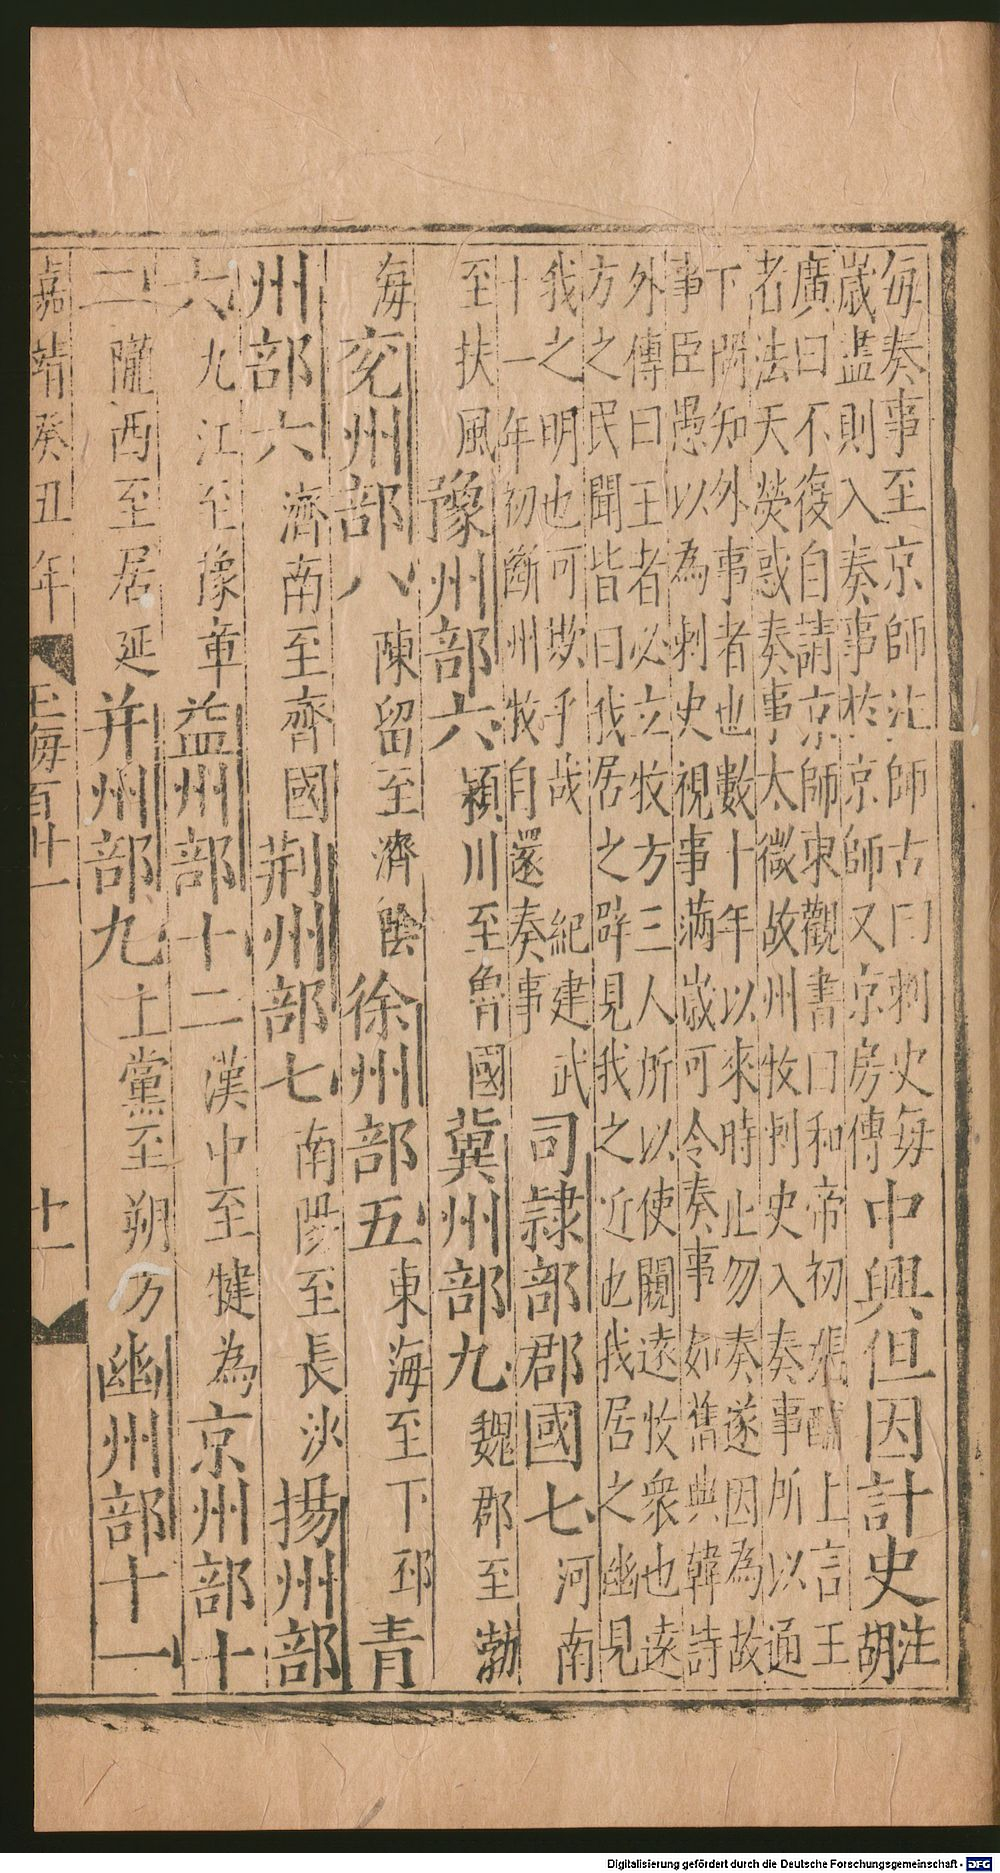 每奏事至京師注師古曰刺史每
歲盡則入奏事於京師又京房傳
中興但因計史注胡
廣曰不復自請京師東觀書曰和帝初張酺上言王
者法天熒惑奏事太微故州牧刺史入奏事所以通
下問知外事者也數十年以來時止勿奏遂因為故
事臣愚以為刺史視事滿歲可令奏事如舊典韓詩
外傳曰王者必立牧方三人所以使闚遠牧衆也遠
方之民聞皆曰我居之辟見我之近也我居之幽見
我之明也可欺乎哉
紀建武
十一年初斷州牧自還奏事
司隷部郡國七河南
至扶風豫州部六潁川至魯國冀州部九魏郡至勃
海兖州部八陳留至濟陰徐州部五東海至下邳青
州部六濟南至齊國荆州部七南陽至長沙揚州部
六九江至豫章益州部十二漢中至犍為京州部十
二隴西至居延并州部九上黨至朔方幽州部十一
嘉靖癸丑年
玉海百廿一
十一
Digitalisierung gefördert durch die Deutsche Forschungsgemeinschaft - DFG